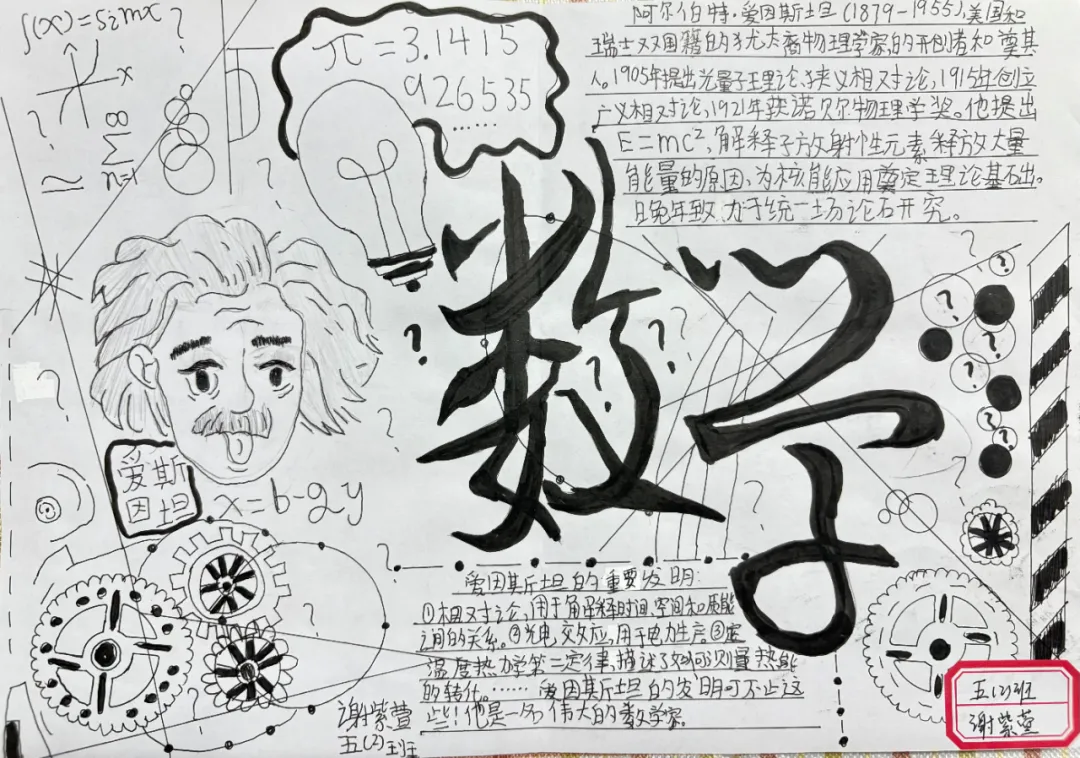 f(x)=simx
x
∞
n=1
π=3.1415
926535
……
阿尔伯特·爱因斯坦(1879-1955),美国和
瑞士双国籍的犹太裔物理学家,的开创者和奠基
人。1905年提出光量子理论,狭义相对论,1915年创立
广义相对论,1921年获诺贝尔物理学奖。他提出
E=mc²,解释了放射性元素释放大量
能量的原因,为核能应用奠定理论基石出。
晚年致力于统一场论石开究。
数学
爱斯
因坦
x=b-gy
爱因斯坦的重要发明:
①相对论,用于解释时间,空间和质能
之间的关系。②光电效应,用于电力生产③定
温度热力学第二定律,描述了如何测量热能
的转化。……爱因斯坦的发明可不止这
些!他是一名伟大的数学家。
谢紫萱
五(2)班
五(2)班
谢紫萱